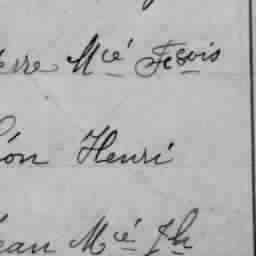 erre Mcé Fcois
éon Henri
ean Mcé Jh